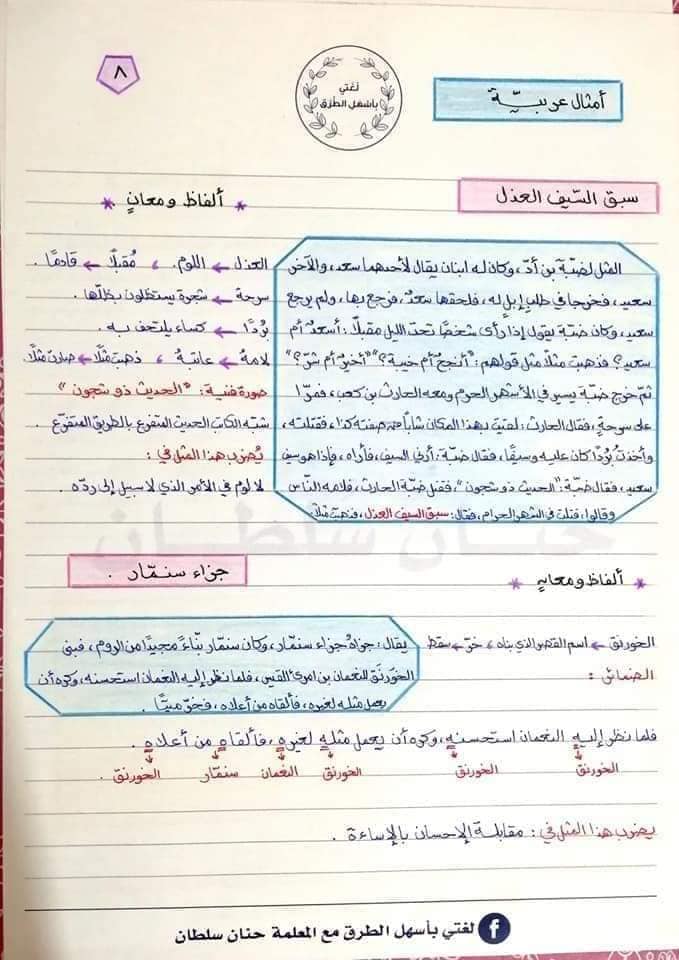 ٨
لغتي
بأسهل الطرق
أمثال عربيّة
سبق السّيف العذل
* ألفاظ ومعانٍ *
المثل لضبّة بن أدّ، وكان له ابنان يقال لأحدهما سعد، والآخر
سعيد، فخرجا في طلب إبل له، فلحقها سعدٌ، فرجع بها، ولم يرجع
سعيد، وكان ضبّة يقول إذا رأى شخصًا تحت الليل مقبلًا: أسعدٌ أم
سعيد؟ فذهبت مثلًا مثل قولهم: "أنجحٌ أم خيبة" "أخيرٌ أم شرّ؟"
ثمّ خرج ضبّة يسير في الأشهر الحرم ومعه الحارث بن كعب، فمرّا
على سرحةٍ، فقال الحارث: لقيت بهذا المكان شابًا صفته كذا، فقتلته،
وأخذتُ بُردًا كان عليه وسيفًا، فقال ضبّة: أرني السيف، فأراه، فإذا هو سيف
سعيد، فقال ضبّة: "الحديث ذو شجون"، فقتل ضبّة الحارث، فلامه النّاس
وقالوا، قتلت في الشهر الحرام، فقال: سبق السيف العذل، فذهبت مثلًا.
العذل ← اللوم. ، مُقبلًا ← قادمًا.
سرحة ← شجرة يستظلون بظلّها.
بُردًا ← كساء يلتحف به.
لامهُ ← عاتبهُ ، ذهبت مثلًا ← صارت مثلًا
صورة فنية: "الحديث ذو شجون"
شبّه الكاتب الحديث المتفرع بالطريق المتفرّع.
يُضرب هذا المثل في:
لا لوم في الأمر الذي لا سبيل إلى ردّه.
حنان سلطان
جزاء سنمّار.
* ألفاظ ومعانٍ *
الخورنق ← اسم القصر الذي بناه ، خرّ ← سقط
الضمائر:
يقال: جزاهُ جزاء سنمّار، وكان سنمّار بنّاءً مجيدًا من الروم، فبنى
الخورنق للنعمان بن امرئ القيس، فلما نظر إليه النعمان استحسنه، وكره أن
يعمل مثله لغيره، فألقاه من أعلاه، فخرّ ميتًا.
فلما نظر إليه النعمان استحسنه، وكره أن يعمل مثله لغيره، فألقاه من أعلاه.
الخورنق الخورنق الخورنق النعمان سنمّار الخورنق.
يضرب هذا المثل في: مقابلة الإحسان بالإساءة.
لغتي بأسهل الطرق مع المعلمة حنان سلطان